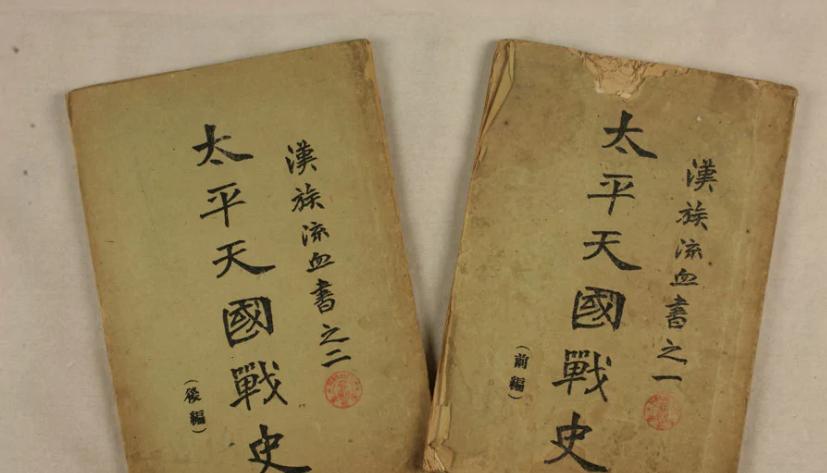 漢族流血書之一
太平天國戰史
（前編）
漢族流血書之二
太平天國戰史
（後編）